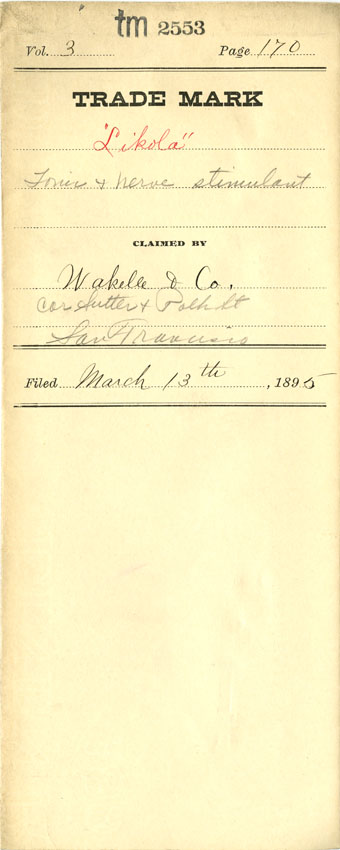 tm 2553
Vol. 3 Page 170
TRADE MARK
"Likola"
Tonic & nerve stimulant
CLAIMED BY
Wakelee & Co.
Cor Sutter & Polk St
San Francisco
Filed March 13th, 1895